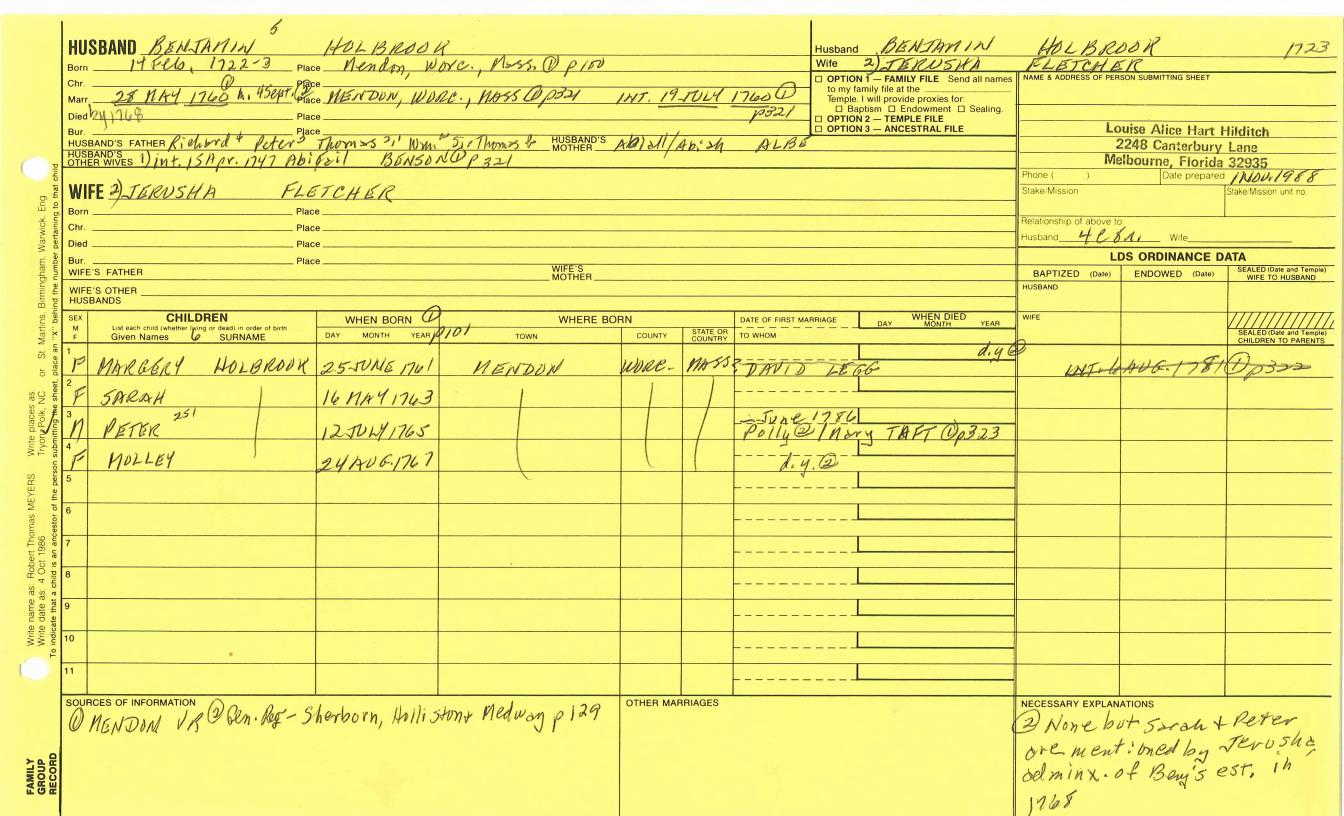 5
HUSBAND BENJAMIN HOLBROOK
Born 14 Feb, 1722-3 Place Mendon, Worc., Mass. ① p100
Chr. Place
Marr. 28 MAY 1760 ① 4 Sept. ② Place MENDON, WORC., MASS ① p321 INT. 19 JULY 1760 ①
Died by 1768 Place p321
Bur. Place
HUSBAND'S FATHER Richard4 Peter3 Thomas HUSBAND'S MOTHER ALBE
HUSBAND'S OTHER WIVES 1) int. 15 Apr. 1747 Abigail BENSON ① p321
WIFE 2) JERUSHA FLETCHER
Born Place
Chr. Place
Died Place
Bur. Place
WIFE'S FATHER WIFE'S MOTHER
WIFE'S OTHER HUSBANDS
Husband BENJAMIN HOLBROOK 1723
Wife 2) JERUSHA FLETCHER
☐ OPTION 1 — FAMILY FILE Send all names
to my family file at the
Temple. I will provide proxies for:
☐ Baptism ☐ Endowment ☐ Sealing.
☐ OPTION 2 — TEMPLE FILE
☐ OPTION 3 — ANCESTRAL FILE
NAME & ADDRESS OF PERSON SUBMITTING SHEET
Louise Alice Hart Hilditch
2248 Canterbury Lane
Melbourne, Florida 32935
Phone ( ) Date prepared 1 Nov. 1988
Stake/Mission Stake/Mission unit no.
Relationship of above to:
Husband Wife
LDS ORDINANCE DATA
BAPTIZED (Date) ENDOWED (Date) SEALED (Date and Temple) WIFE TO HUSBAND
HUSBAND
WIFE
SEALED (Date and Temple) CHILDREN TO PARENTS
SEX M F
CHILDREN
List each child (whether living or dead) in order of birth
Given Names 6 SURNAME
WHEN BORN ①
DAY MONTH YEAR p101
WHERE BORN
TOWN COUNTY STATE OR COUNTRY
DATE OF FIRST MARRIAGE
TO WHOM
WHEN DIED
DAY MONTH YEAR
1 F MARGERY HOLBROOK 25 JUNE 1761 MENDON WORC. MASS DAVID LEGG d.y. ② INT. 6 AUG. 1781 ① p322
2 F SARAH 16 MAY 1763
3 M PETER 251 12 JULY 1765 June 1786
Polly ② / Mary TAFT ① p323
4 F MOLLEY 24 AUG. 1767 d.y. ②
5
6
7
8
9
10
11
SOURCES OF INFORMATION
① MENDON VR ② Gen. Reg - Sherborn, Holliston & Medway p 129
OTHER MARRIAGES
NECESSARY EXPLANATIONS
② None but Sarah & Peter
are mentioned by Jerusha,
adminx. of Benj's est. in
1768
Write name as: Robert Thomas MEYERS Write places as Tryon, Polk, NC or St. Martins, Birmingham, Warwick, Eng
Write date as: 4 Oct 1986
To indicate that a child is an ancestor of the person submitting the sheet, place an "X" behind the number pertaining to that child
FAMILY GROUP RECORD